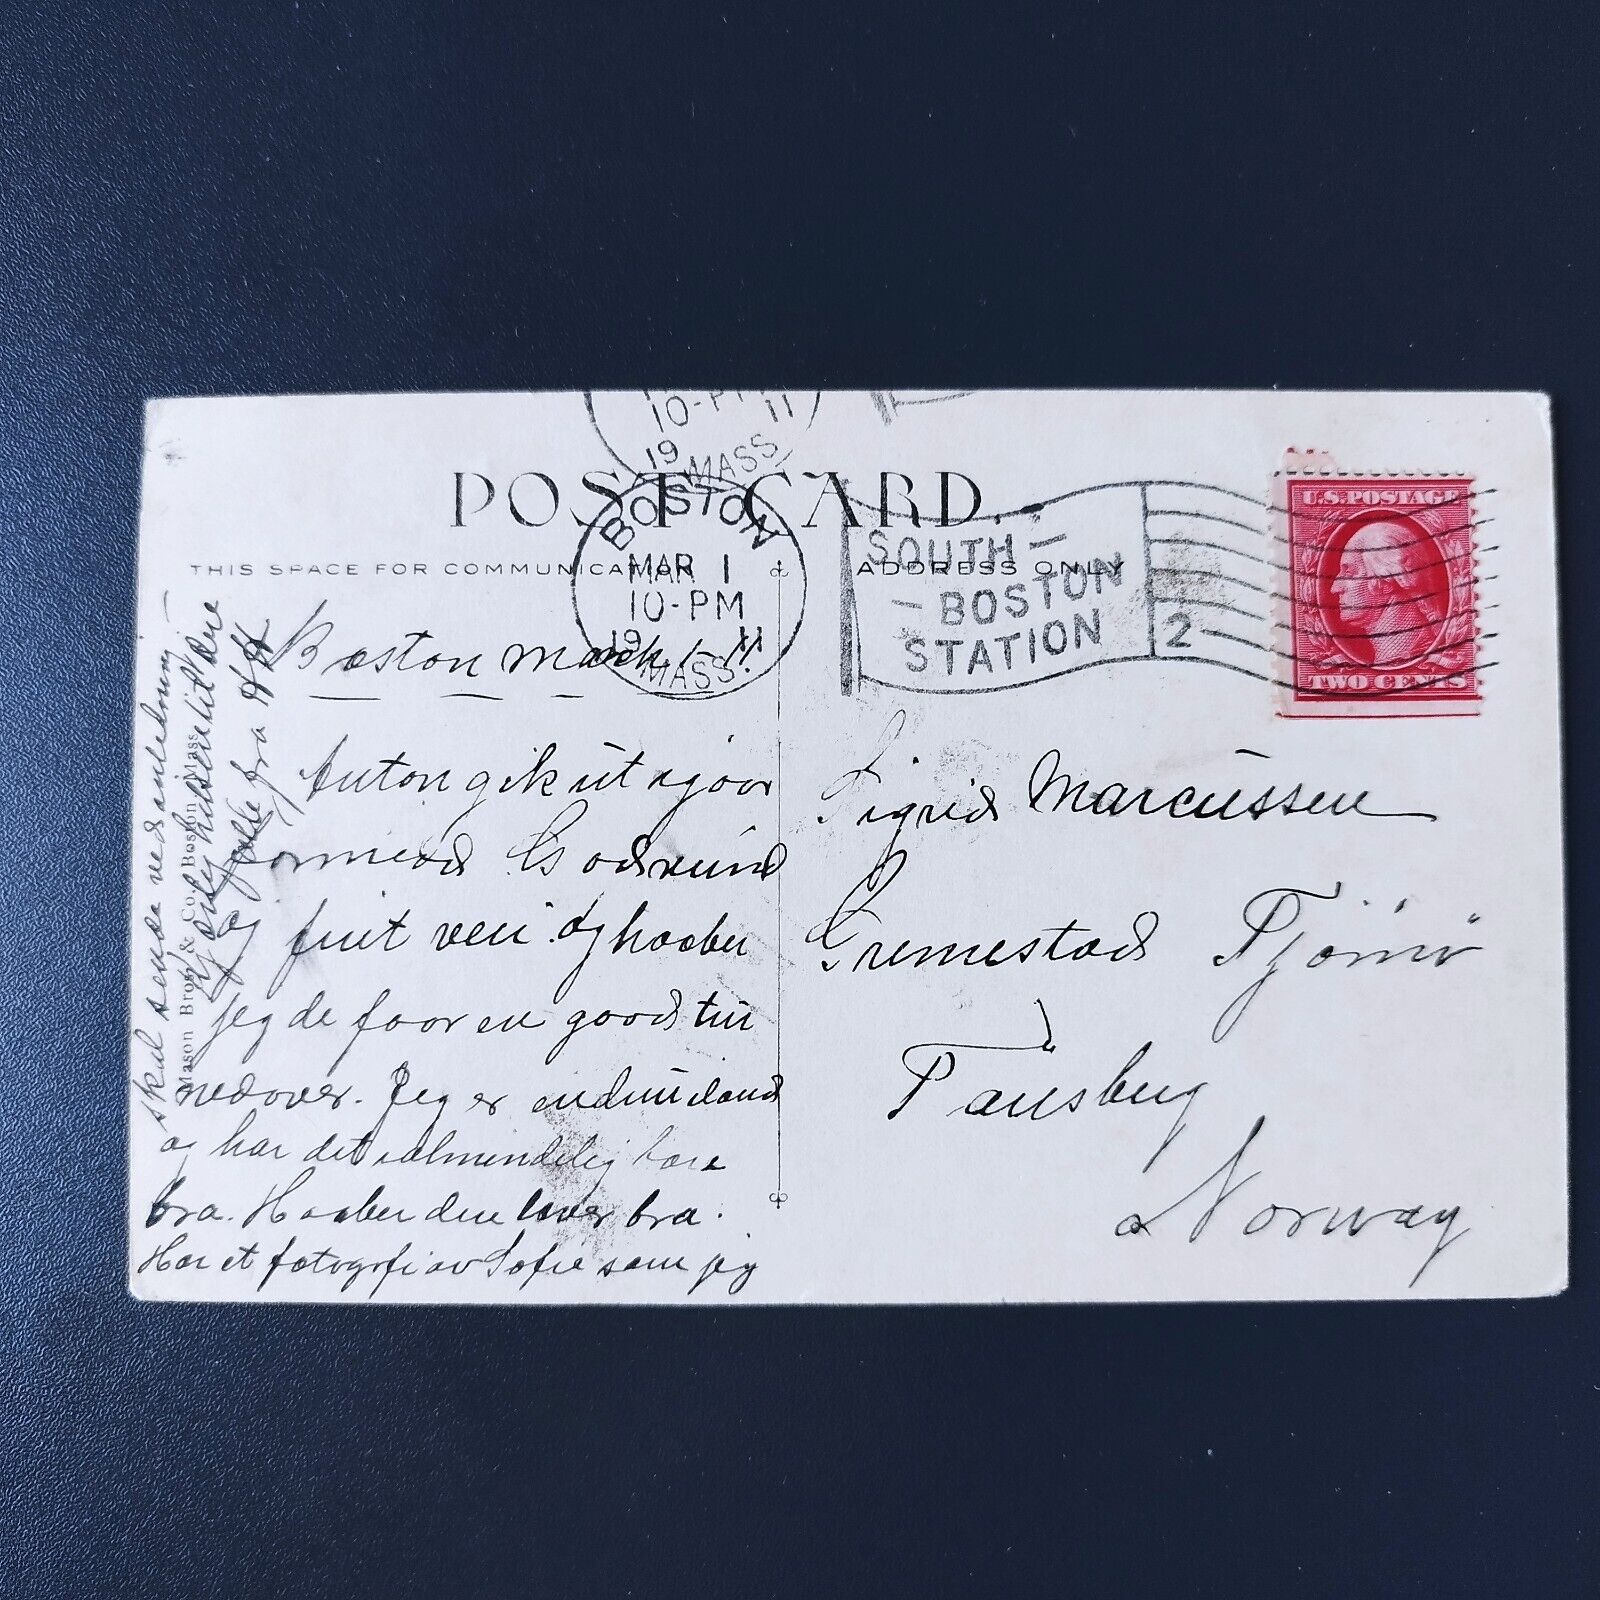 10-PM 11
19 MASS.
POST CARD.
BOSTON
MAR 1
10-PM
1911
MASS.
SOUTH-
-BOSTON
STATION
2
U.S. POSTAGE
TWO CENTS
THIS SPACE FOR COMMUNICATION
ADDRESS ONLY
Boston March 1 - 11.
Anton gik ut igaar
formidd Godvind
og fint veir. og haaber
jeg de faar en good tur
nedover. Jeg er endnu iland
og har det almindelig bare
bra. Haaber dere lever bra.
Har et fotografi av Sofie som jeg
skal sende ved anledning -
hilsen til dere
alle fra
Mason Bros. & Co. Boston Mass.
Sigrid Marcussen
Grimestad Tjømø
Tønsberg
Norway